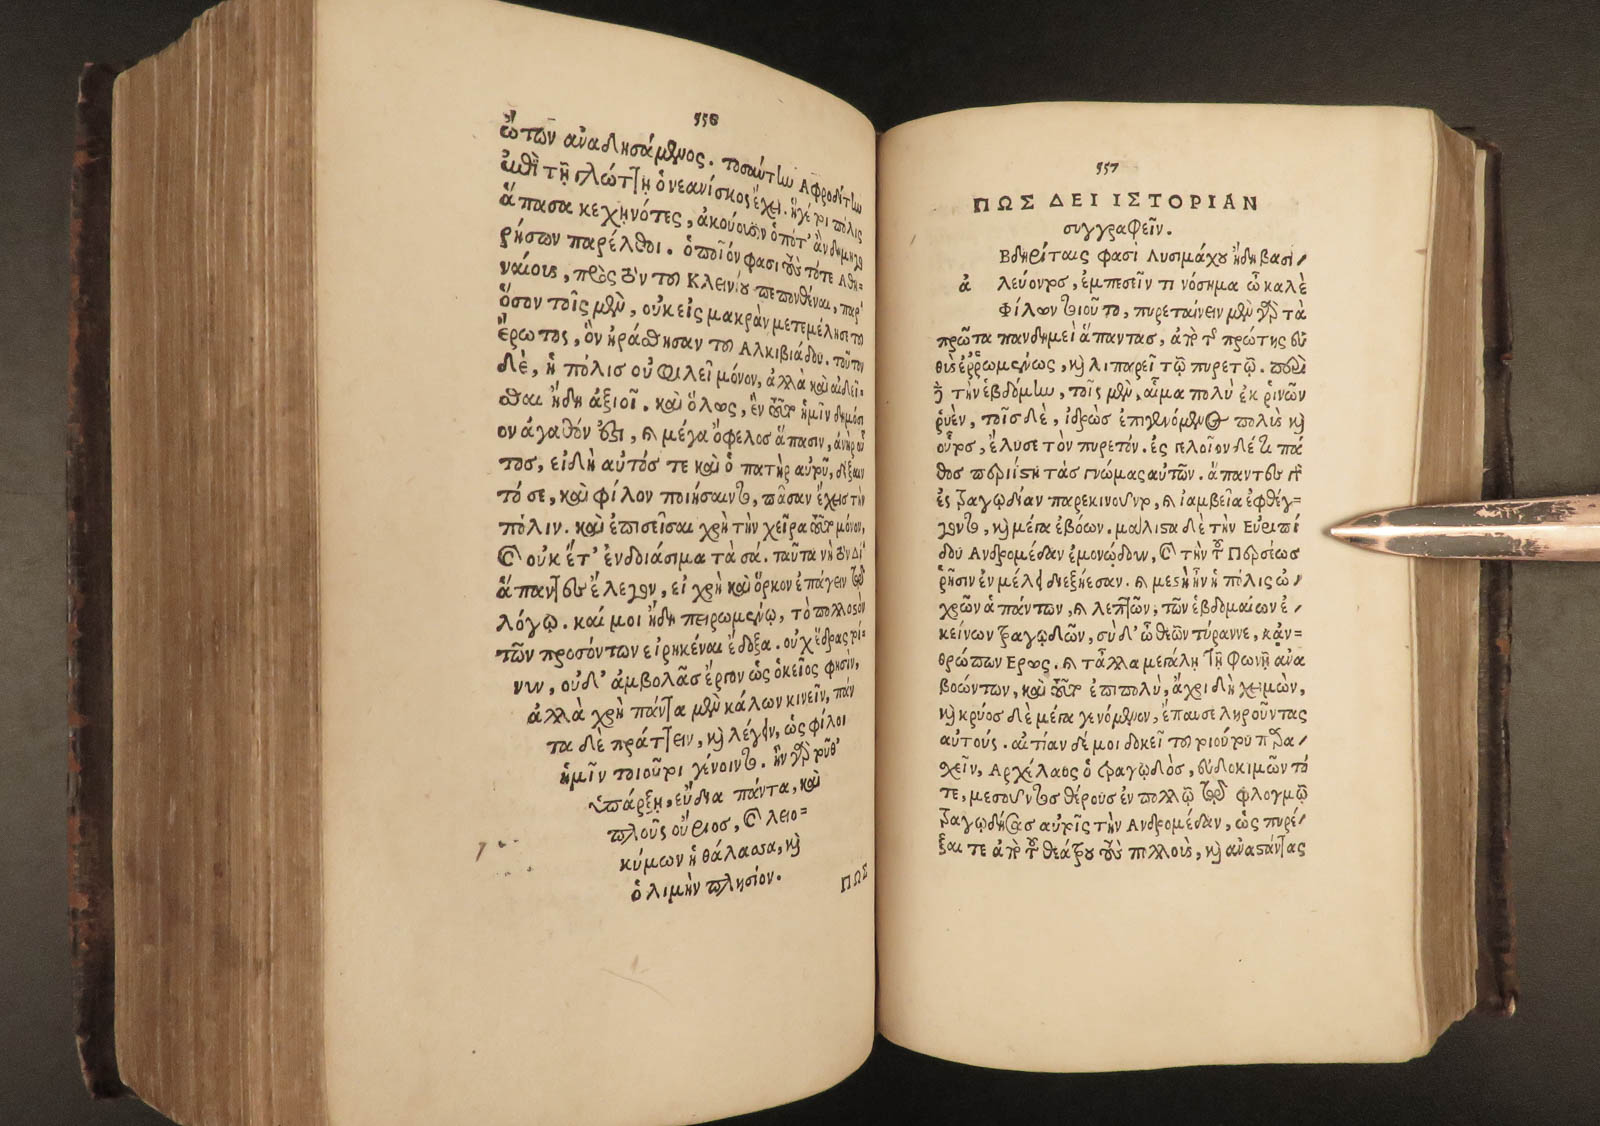 556
ὤτων ἀναδησάμενος. τοσαύτην Ἀφροδίτην
ἐπὶ τῇ γλώττῃ ὁ νεανίσκος ἔχει. ἡ γέ τοι πόλις
ἅπασα κεχηνότες, ἀκούουσιν ὁπότ' ἂν δημηγο
ρήσων παρέλθοι. ὁποῖόν φασι τοὺς τότε Ἀθη-
ναίους, πρὸς τὸν τοῦ Κλεινίου πεπονθέναι, παρ'
ὅσον τοῖς μὲν, οὐκ εἰς μακρὰν μετεμέλησε τοῦ
ἔρωτος, ὃν ἠράσθησαν τοῦ Ἀλκιβιάδου. τοῦτον
δὲ, ἡ πόλισ οὐ φιλεῖ μόνον, ἀλλὰ καὶ αἰδεῖ-
σθαι ἤδη ἀξιοῖ. καὶ ὅλως, ἓν τοῦτο ἡμῖν δημόσι
ον ἀγαθόν ἐστι, καὶ μέγα ὄφελοσ ἅπασιν, ἀνὴρ οὗ
τος, εἰ δὴ αὐτόσ τε καὶ ὁ πατὴρ αὐτοῦ, δέξαιν
τό σε, καὶ φίλον ποιήσαιντο, πᾶσαν ἔχεις τὴν
πόλιν. καὶ ἐπισεῖσαι χρὴ τὴν χεῖρα τοῦτο μόνον,
καὶ οὐκ ἔτ' ἐνδοιάσιμα τὰ σά. ταῦτα νὴ τὸν Δί'
ἅπαντες ἔλεγον, εἰ χρὴ καὶ ὅρκον ἐπάγειν τῷ
λόγῳ. καί μοι ἤδη πειρωμένῳ, τὸ πολλοσὸν
τῶν προσόντων εἰρηκέναι ἔδοξα. οὐχ ἕδρας τοί-
νυν, οὐδ' ἀμβολᾶσ ἔργον ὡς ὁ κεῖος φησὶν,
ἀλλὰ χρὴ πάντα μὲν κάλων κινεῖν, πάν
τα δὲ πράττειν, καὶ λέγειν, ὡς φίλοι
ἡμῖν τοιοῦτοι γένοιντο. ἢν γὰρ τοῦθ'
ὑπάρξῃ, εὔδια πάντα, καὶ
πλοῦς οὔριοσ, καὶ λειο-
κύμων ἡ θάλασσα, καὶ
ὁ λιμὴν πλησίον.
ΠΩΣ
557
ΠΩΣ ΔΕΙ ΙΣΤΟΡΙΑΝ
συγγραφεῖν.
Βδηρίταις φασὶ Λυσιμάχου ἤδη βασι/
ἀ λεύοντος, ἐμπεσεῖν τι νόσημα ὦ καλὲ
Φίλων τοιοῦτο, πυρεταίνειν μὲν γὰρ τὰ
πρῶτα πανδημεὶ ἅπαντασ, ἀπὸ τῆς πρώτης εὐ
θὺσ ἐῤῥωμένως, καὶ λιπαρεῖ τῷ πυρετῷ. περὶ
δὲ τὴν ἑβδόμην, τοῖς μὲν, αἷμα πολὺ ἐκ ῥινῶν
ῥυὲν, τοῖσ δὲ, ἱδρὼσ ἐπιγενόμενος πολὺς καὶ
οὗτος, ἔλυσε τὸν πυρετόν. ἐς γελοῖον δέ τι πά
θοσ περιίστη τὰσ γνώμας αὐτῶν. ἅπαντες γὰρ
ἐς τραγῳδίαν παρεκινοῦντο, καὶ ἰαμβεῖα ἐφθέγ=
γοντο, καὶ μέγα ἐβόων. μάλιστα δὲ τὴν Εὐριπί
δου Ἀνδρομέδαν ἐμονῴδουν, καὶ τὴν τοῦ Περσέωσ
ῥῆσιν ἐν μέλει διεξῄεσαν. καὶ μεστὴ ἦν ἡ πόλις ὠ/
χρῶν ἁπάντων, καὶ λεπτῶν, τῶν ἑβδομαίων ἐ/
κείνων τραγῳδῶν, σὺ δ' ὦ θεῶν τύραννε, κἀν=
θρώπων Ἔρως. καὶ τἆλλα μεγάλῃ τῇ φωνῇ ἀνα
βοώντων, καὶ τοῦτο ἐπιπολὺ, ἄχρι δὴ χειμὼν,
καὶ κρύοσ δὲ μέγα γενόμενον, ἔπαυσε ληροῦντας
αὐτούς. αἰτίαν δέ μοι δοκεῖ τοῦ τοιούτου παρα/
σχεῖν, Ἀρχέλαος ὁ τραγῳδὸσ, εὐδοκιμῶν τό
τε, μεσοῦντος θέρουσ ἐν πολλῷ τῷ φλογμῷ
τραγῳδήσας αὐτοῖς τὴν Ἀνδρομέδαν, ὡς πυρέ/
ξαι τε ἀπὸ τοῦ θεάτρου τοὺς πολλοὺς, καὶ ἀναστάντας